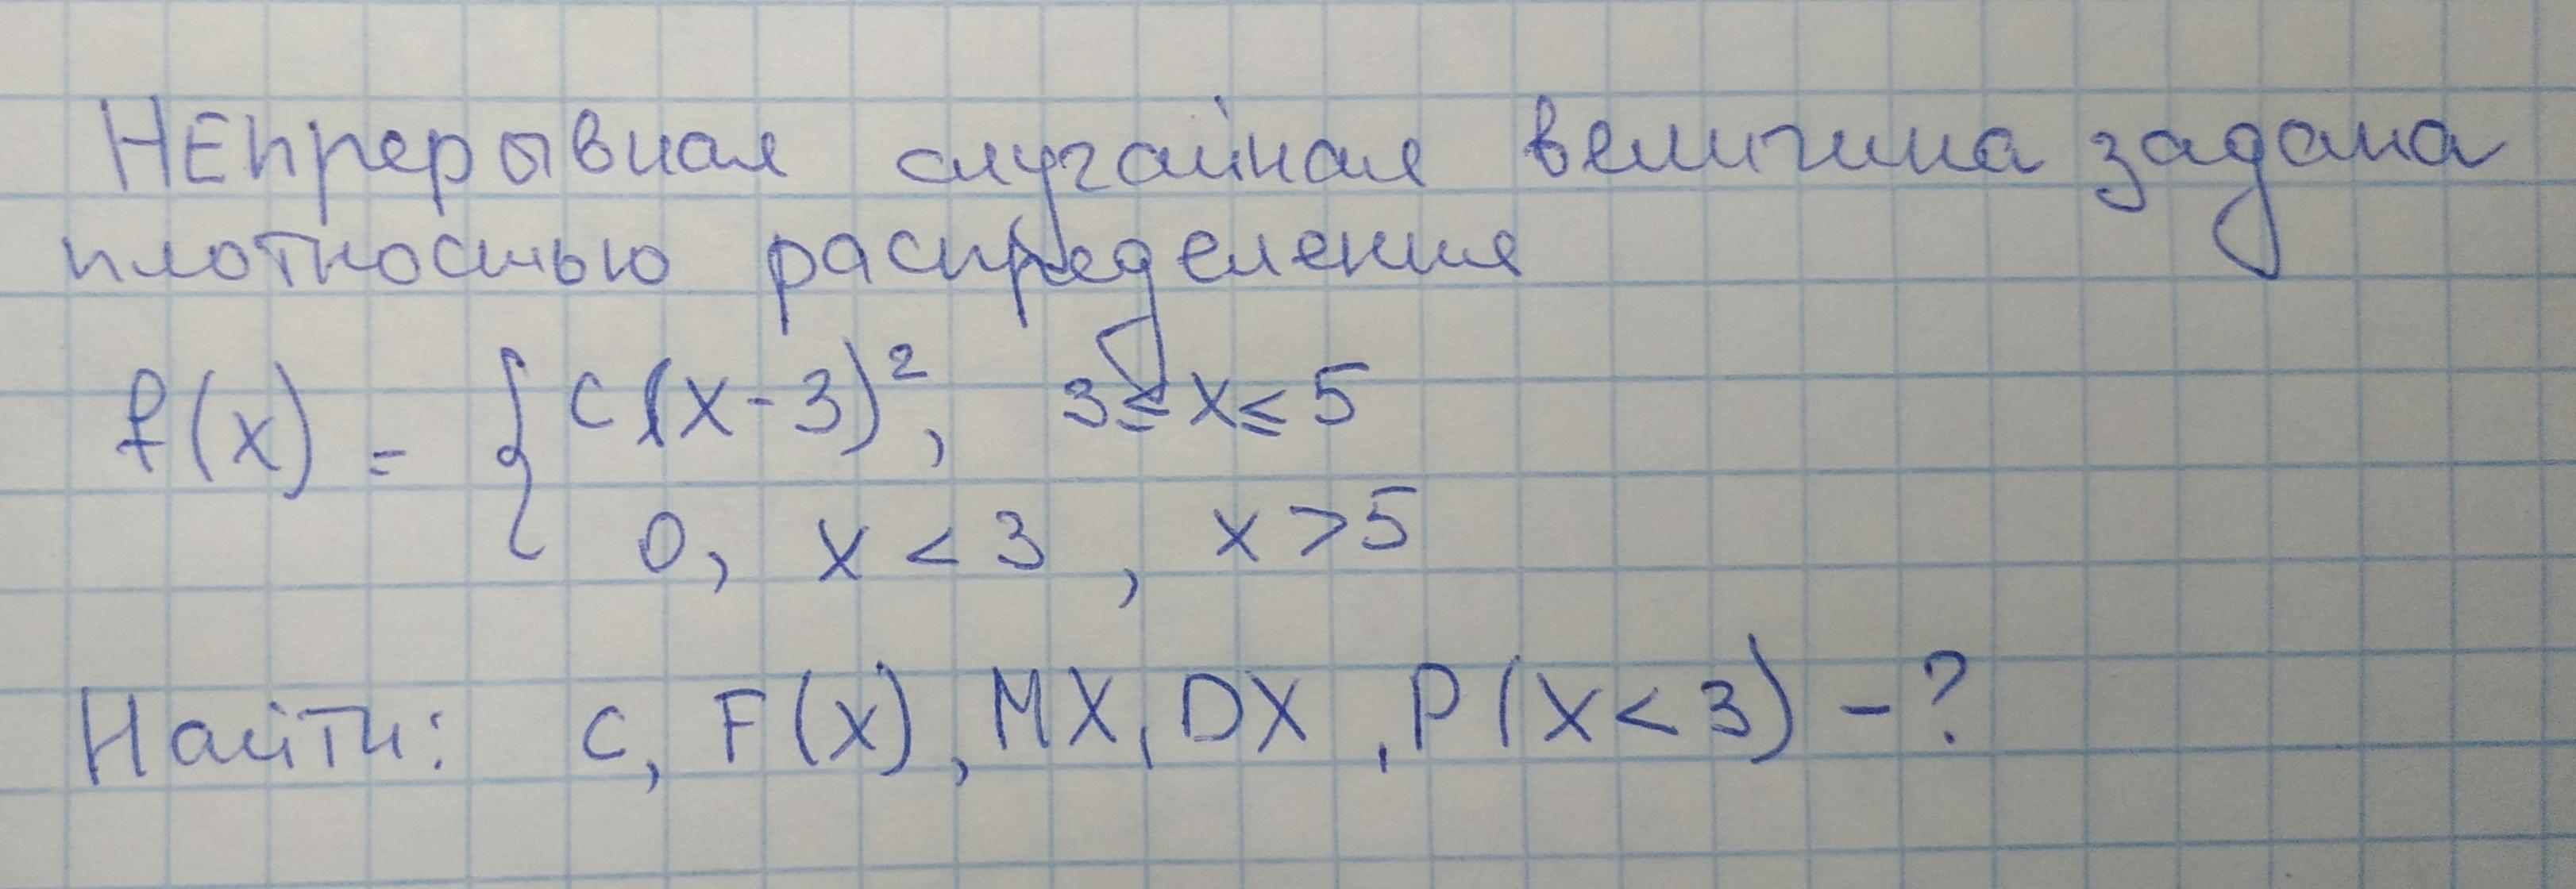 НЕпрерывная случайная величина задана
плотностью распределения
f(x) = { c(x-3)², 3≤x≤5
0, x<3, x>5
Найти: c, F(x), MX, DX, P(X<3) -?